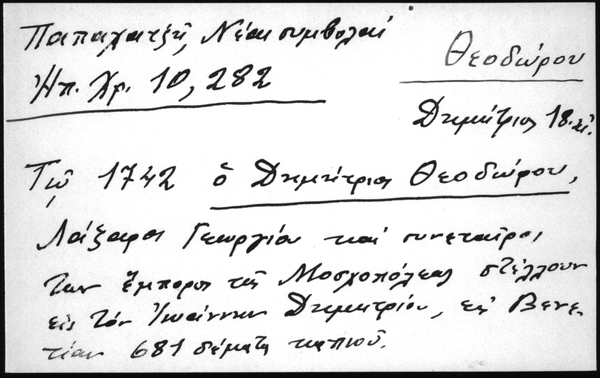 Παπαχατζῆ, Νέαι συμβολαί
Ἠπ. Χρ. 10, 282
Θεοδώρου
Δημήτριος 18. αἰ.
Τῷ 1742 ὁ Δημήτριος Θεοδώρου,
Λάζαρος Γεωργίου καὶ συνεταῖροι
των ἔμποροι τῆς Μοσχοπόλεως στέλλουν
εἰς τὸν Ἰωάννην Δημητρίου, εἰς Βενε-
τίαν 681 δέματα